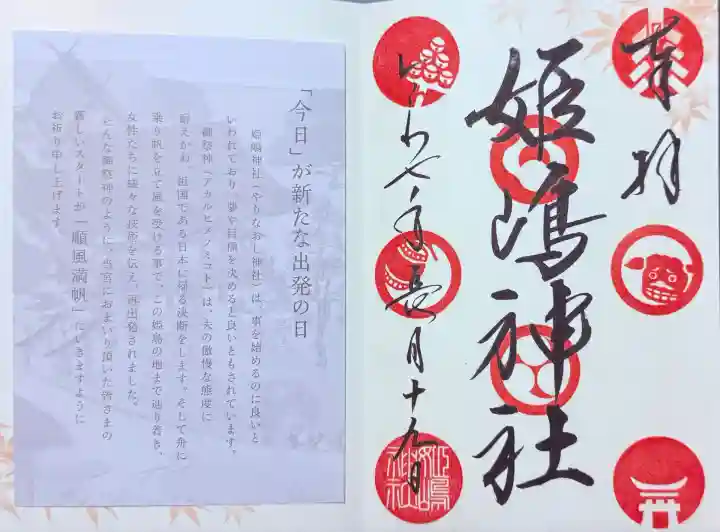 奉拝
姫嶋神社
れいわ七年長月十九日
姫嶋神社
「今日」が新たな出発の日
姫嶋神社(やりなおし神社)は、事を始めるのに良いと
いわれており、夢や目標を決めると良いともされています。
御祭神(アカルヒメノミコト)は、夫の傲慢な態度に
耐えかね、祖国である日本に帰る決断をします。そして舟に
乗り帆を立て風を受ける事で、この姫島の地まで辿り着き、
女性たちに様々な技術を伝え、再出発されました。
そんな御祭神のように、当宮におまいり頂いた皆さまの
新しいスタートが「順風満帆」にいきますように
お祈り申し上げます。